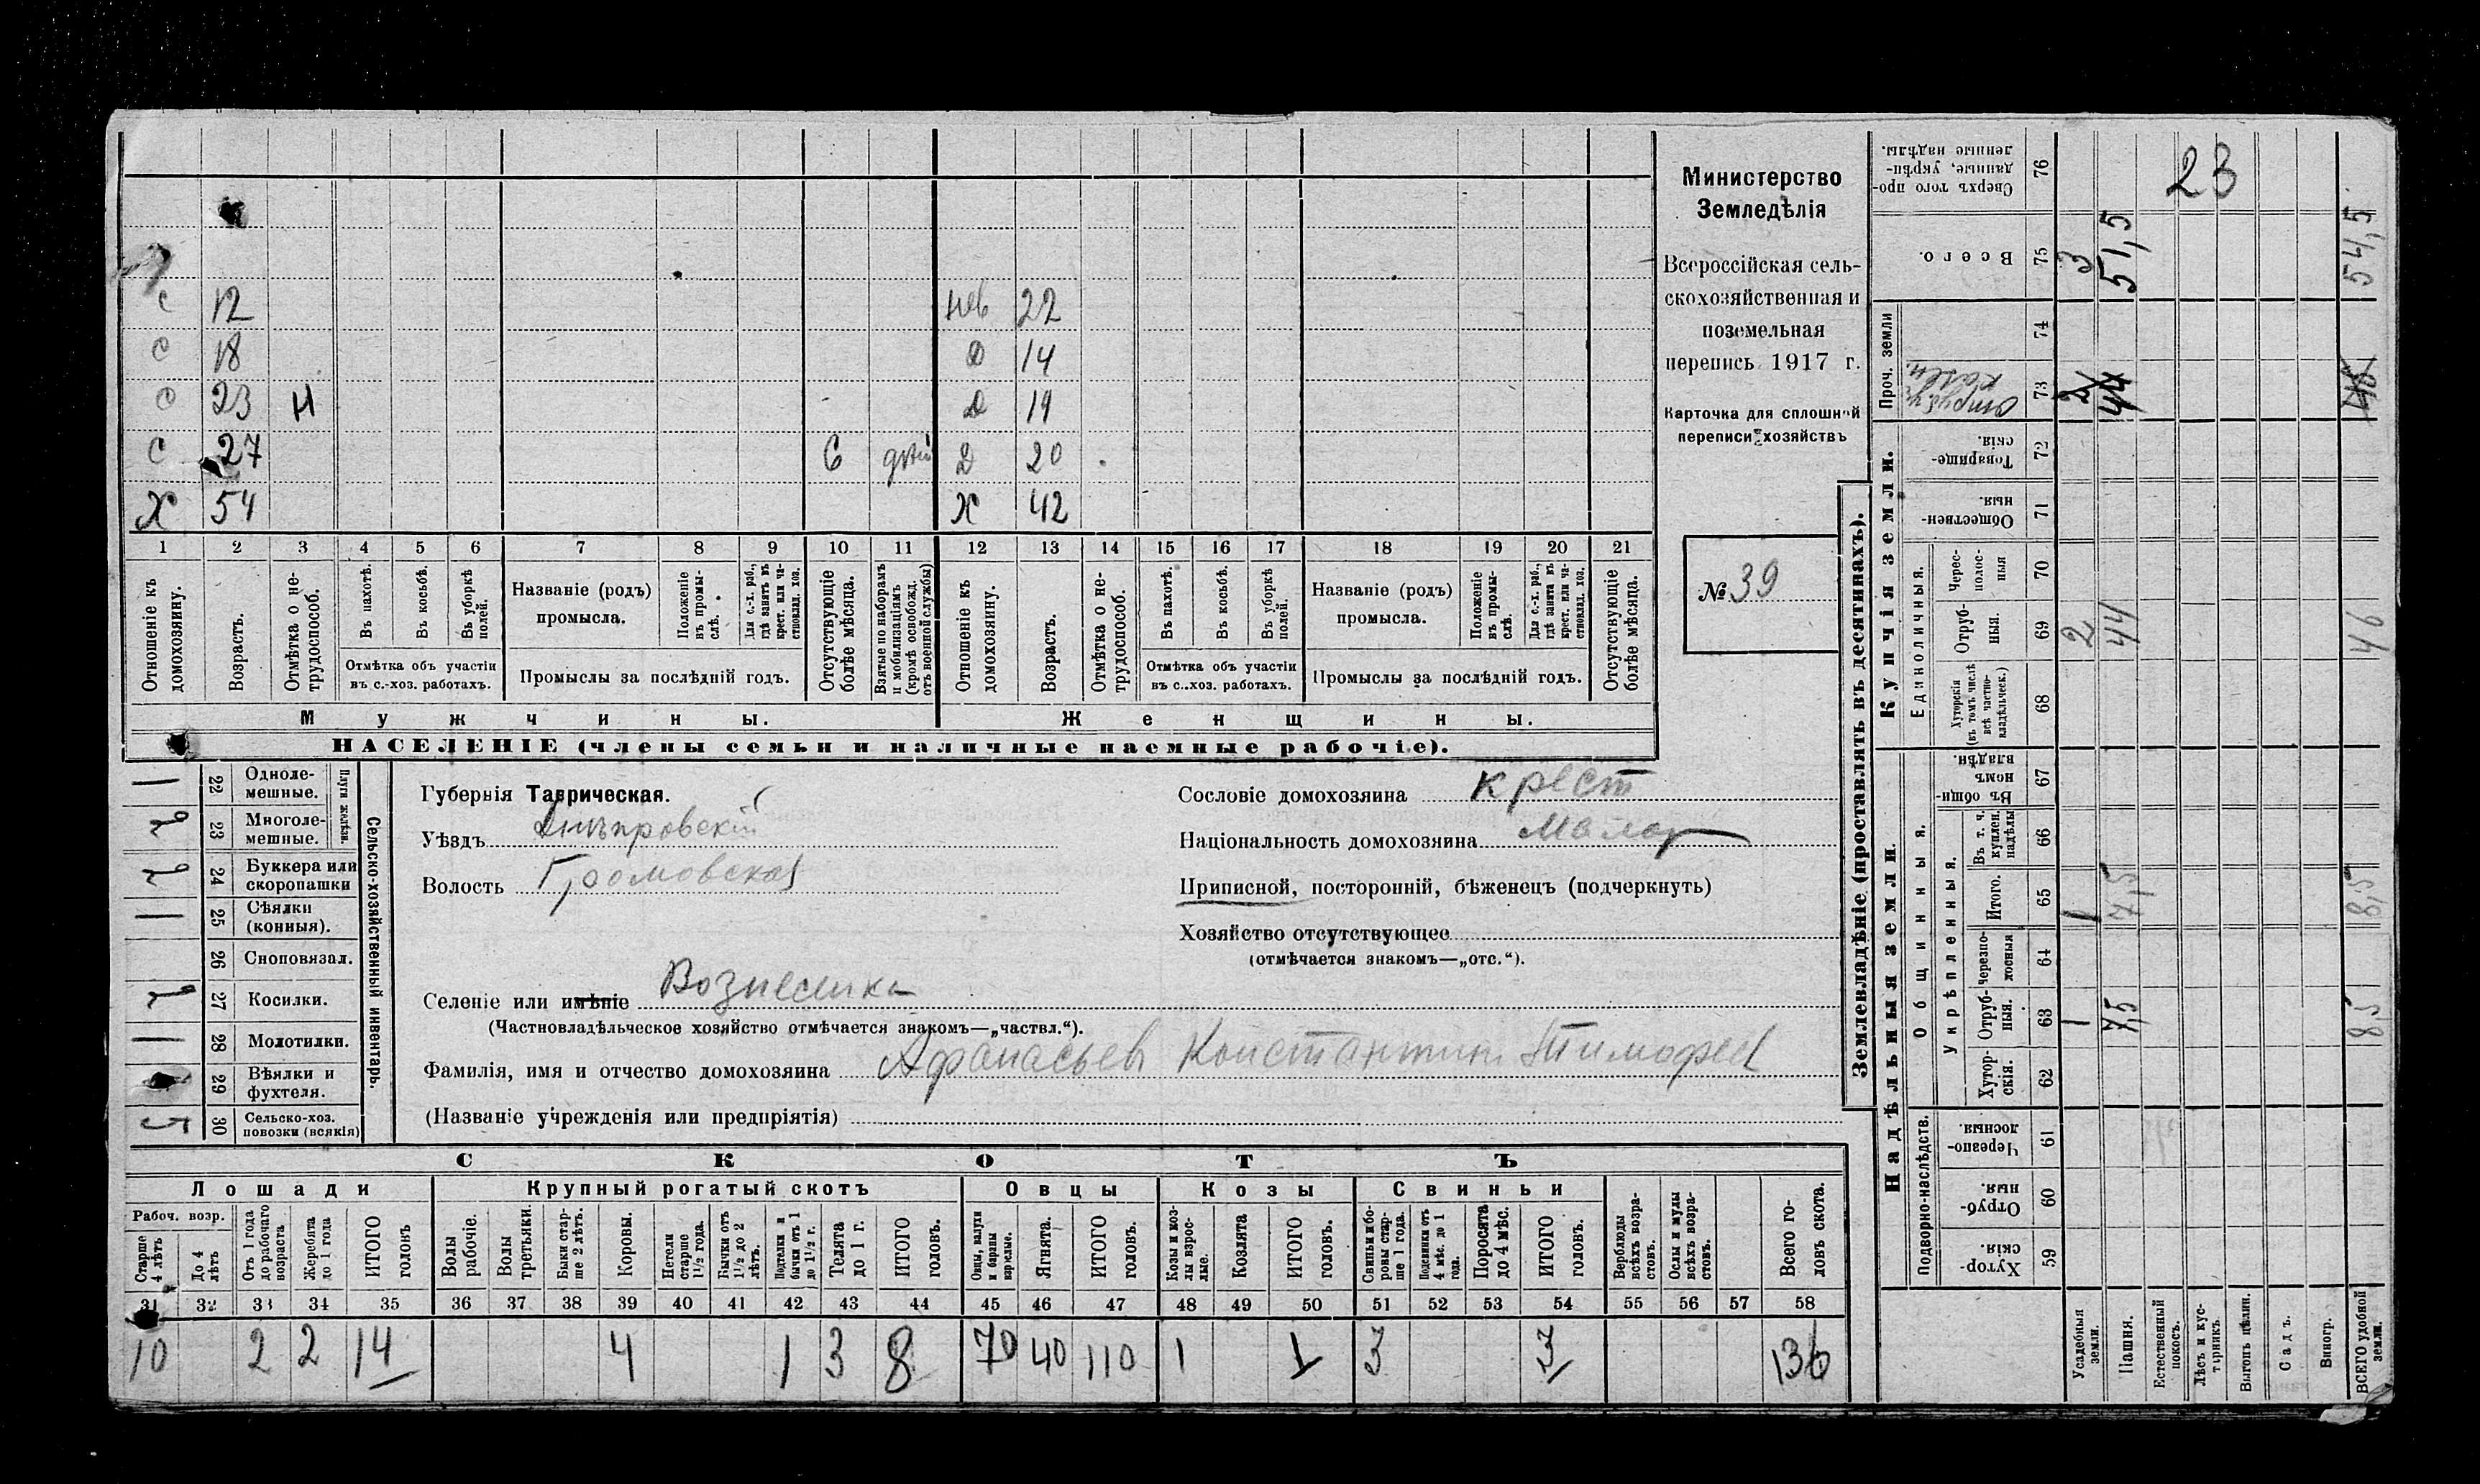 Министерство
Земледѣлія
Всероссійская сель-
скохозяйственная и
поземельная
перепись 1917 г.
Карточка для сплошной
переписи хозяйствъ
№ 39
С 12 нев 22
С 18 Д 14
С 23 Н Д 19
С 27 С Д 20
Х 54 Х 42
1 2 3 4 5 6 7 8 9 10 11 12 13 14 15 16 17 18 19 20 21
Отношеніе къ домохозяину.
Возрастъ.
Отмѣтка о не-трудоспособ.
Въ пахотѣ.
Въ косьбѣ.
Въ уборкѣ полей.
Отмѣтка объ участіи
въ с.-хоз. работахъ.
Названіе (родъ)
промысла.
Положеніе въ промы-слѣ.
Для с.-х. раб., гдѣ занятъ въ крест. или ча-стновлад. хоз.
Промыслы за послѣдній годъ.
Отсутствующіе болѣе мѣсяца.
Взятые по наборамъ и мобилизаціямъ (кромѣ освобожд. отъ военной службы)
Отношеніе къ домохозяину.
Возрастъ.
Отмѣтка о не-трудоспособ.
Въ пахотѣ.
Въ косьбѣ.
Въ уборкѣ полей.
Отмѣтка объ участіи
въ с.-хоз. работахъ.
Названіе (родъ)
промысла.
Положеніе въ промы-слѣ.
Для с.-х. раб., гдѣ занята въ крест. или ча-стновлад. хоз.
Промыслы за послѣдній годъ.
Отсутствующіе болѣе мѣсяца.
Мужчины.
Женщины.
НАСЕЛЕНІЕ (члены семьи и наличные наемные рабочіе).
Сельско-хозяйственный инвентарь.
Плуги желѣзн.
1 22 Одноле-мешные.
2 23 Многоле-мешные.
2 24 Буккера или скоропашки
1 25 Сѣялки (конныя).
26 Сноповязал.
2 27 Косилки.
1 28 Молотилки.
29 Вѣялки и фухтеля.
5 30 Сельско-хоз. повозки (всякія)
Губернія Таврическая.
Уѣздъ Днѣпровскій
Волость Громовская
Сословіе домохозяина крест
Національность домохозяина Малор
Приписной, посторонній, бѣженецъ (подчеркнуть)
Хозяйство отсутствующее
(отмѣчается знакомъ—„отс.“).
Селеніе или имѣніе Вознесенка
(Частновладѣльческое хозяйство отмѣчается знакомъ—„частвл.“).
Фамилія, имя и отчество домохозяина Афанасьев Константин Тимофеев
(Названіе учрежденія или предпріятія)
СКОТЪ
Лошади
Крупный рогатый скотъ
Овцы
Козы
Свиньи
Рабоч. возр.
Старше 4 лѣтъ
До 4 лѣтъ
Отъ 1 года до рабочаго возраста
Жеребята до 1 года
ИТОГО головъ
Волы рабочіе.
Волы третьяки.
Быки стар-ше 2 лѣтъ.
Коровы.
Нетели старше 1½ года.
Бычки отъ 1½ до 2 лѣтъ.
Подтелки и бычки отъ 1 до 1½ г.
Телята до 1 г.
ИТОГО головъ.
Овцы, валухи и бараны взрослые.
Ягнята.
ИТОГО головъ.
Козы и коз-лы взрос-лые.
Козлята
ИТОГО головъ.
Свиньи и бо-ровы стар-ше 1 года.
Подсвинки отъ 4 мѣс. до 1 года.
Поросята до 4 мѣс.
ИТОГО головъ.
Верблюды всѣхъ возра-стовъ.
Ослы и мулы всѣхъ возра-стовъ.
Всего го-ловъ скота.
31 32 33 34 35 36 37 38 39 40 41 42 43 44 45 46 47 48 49 50 51 52 53 54 55 56 57 58
10 2 2 14 4 1 3 8 70 40 110 1 1 3 3 136
Землевладѣніе (проставлять въ десятинахъ).
Надѣльныя земли.
Купчія земли.
Проч. земли
Подворно-наслѣдств.
Общинныя.
Укрѣпленныя.
Единоличныя.
Хутор-скія. 59
Отруб-ныя. 60
Черезпо-лосныя. 61
Хутор-скія. 62
Отруб-ныя. 63 1 7,5 8,5
Черезпо-лосныя 64
Итого. 65 1 7,5 8,5
Въ т. ч. куплен. надѣлы 66
Въ общин-номъ владѣн. 67
Хуторскія (въ томъ числѣ всѣ частно-владѣльческ.) 68
Отруб-ныя. 69 2 44 46
Черес-полос-ныя 70
Обществен-ныя. 71
Товарище-скія. 72
73 2 44 46
74
Всего. 75 3 51,5 54,5
Сверхъ того про-данные, укрѣп-ленные надѣлы. 76 23
Усадебныя земли.
Пашня.
Естественный покосъ.
Лѣсъ и кус-тарникъ.
Выгонъ цѣлин.
Садъ.
Виногр.
ВСЕГО удобной земли.